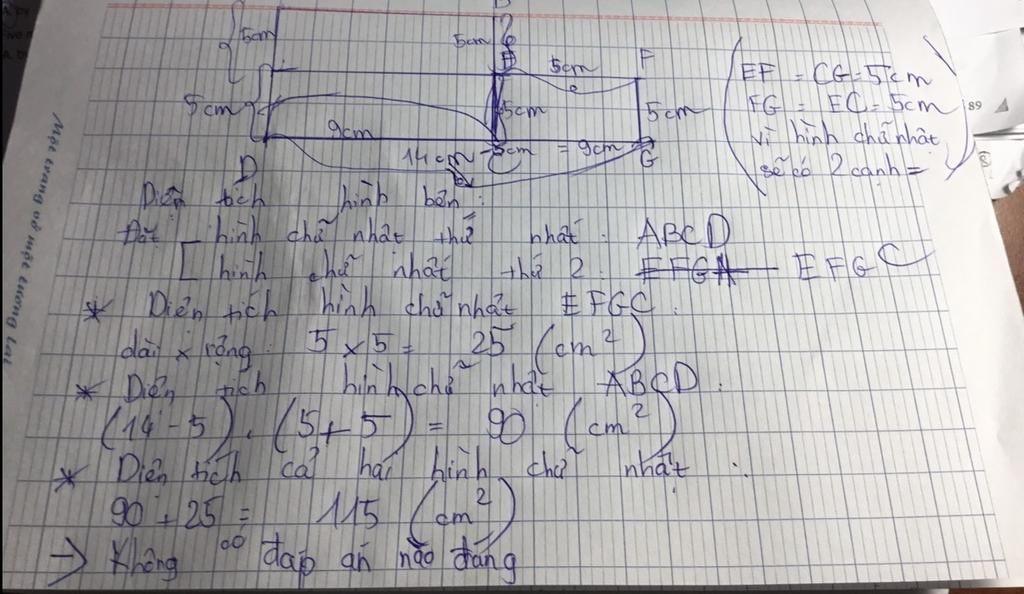 5cm
5cm
5cm
F
5cm
5cm
5cm
9cm
14cm - 5cm = 9cm
D
C
G
EF = CG = 5cm
FG = EC = 5cm
vì hình chữ nhật
sẽ có 2 cạnh =
89
Diện tích hình bên:
Đặt hình chữ nhật thứ nhất: ABCD
hình chữ nhật thứ 2: EFGC
* Diện tích hình chữ nhật EFGC:
dài x rộng: 5 x 5 = 25 (cm²)
* Diện tích hình chữ nhật ABCD:
(14 - 5) . (5 + 5) = 90 (cm²)
* Diện tích cả hai hình chữ nhật:
90 + 25 = 115 (cm²)
→ Không có đáp án nào đúng
Một trang vở một tương lai